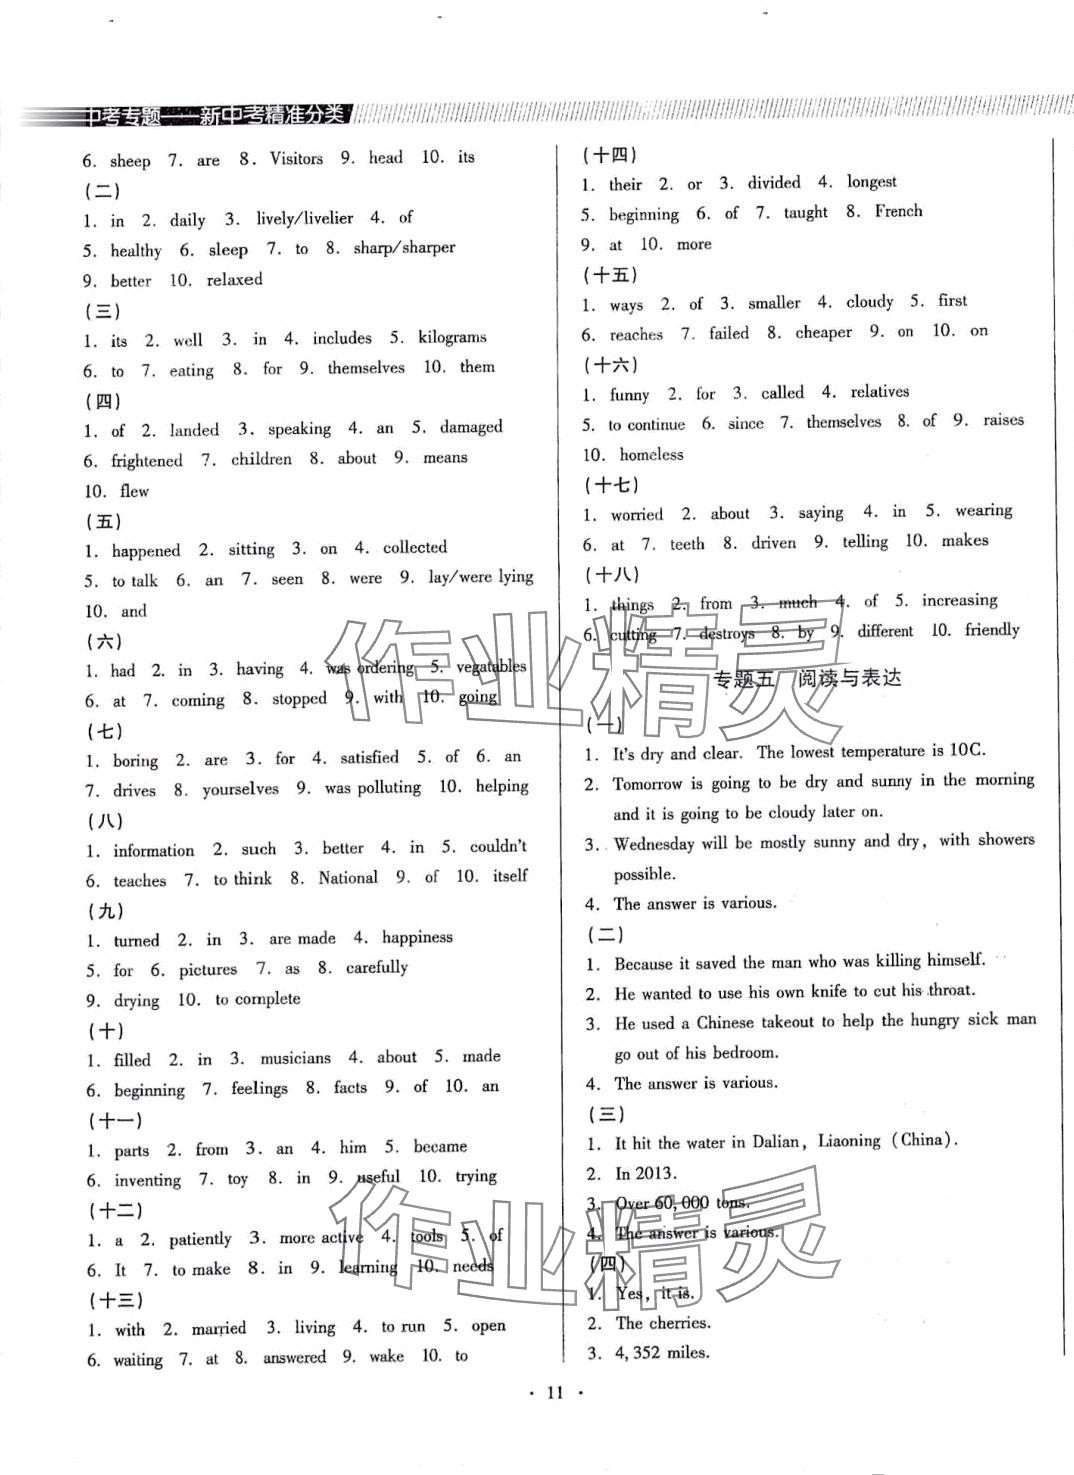 中考专题——新中考精准分类
6. sheep 7. are 8. Visitors 9. head 10. its
(二)
1. in 2. daily 3. lively/livelier 4. of
5. healthy 6. sleep 7. to 8. sharp/sharper
9. better 10. relaxed
(三)
1. its 2. well 3. in 4. includes 5. kilograms
6. to 7. eating 8. for 9. themselves 10. them
(四)
1. of 2. landed 3. speaking 4. an 5. damaged
6. frightened 7. children 8. about 9. means
10. flew
(五)
1. happened 2. sitting 3. on 4. collected
5. to talk 6. an 7. seen 8. were 9. lay/were lying
10. and
(六)
1. had 2. in 3. having 4. was ordering 5. vegatables
6. at 7. coming 8. stopped 9. with 10. going
(七)
1. boring 2. are 3. for 4. satisfied 5. of 6. an
7. drives 8. yourselves 9. was polluting 10. helping
(八)
1. information 2. such 3. better 4. in 5. couldn't
6. teaches 7. to think 8. National 9. of 10. itself
(九)
1. turned 2. in 3. are made 4. happiness
5. for 6. pictures 7. as 8. carefully
9. drying 10. to complete
(十)
1. filled 2. in 3. musicians 4. about 5. made
6. beginning 7. feelings 8. facts 9. of 10. an
(十一)
1. parts 2. from 3. an 4. him 5. became
6. inventing 7. toy 8. in 9. useful 10. trying
(十二)
1. a 2. patiently 3. more active 4. tools 5. of
6. It 7. to make 8. in 9. learning 10. needs
(十三)
1. with 2. married 3. living 4. to run 5. open
6. waiting 7. at 8. answered 9. wake 10. to
(十四)
1. their 2. or 3. divided 4. longest
5. beginning 6. of 7. taught 8. French
9. at 10. more
(十五)
1. ways 2. of 3. smaller 4. cloudy 5. first
6. reaches 7. failed 8. cheaper 9. on 10. on
(十六)
1. funny 2. for 3. called 4. relatives
5. to continue 6. since 7. themselves 8. of 9. raises
10. homeless
(十七)
1. worried 2. about 3. saying 4. in 5. wearing
6. at 7. teeth 8. driven 9. telling 10. makes
(十八)
1. things 2. from 3. much 4. of 5. increasing
6. cutting 7. destroys 8. by 9. different 10. friendly
专题五 阅读与表达
(一)
1. It's dry and clear. The lowest temperature is 10C.
2. Tomorrow is going to be dry and sunny in the morning
and it is going to be cloudy later on.
3. Wednesday will be mostly sunny and dry, with showers
possible.
4. The answer is various.
(二)
1. Because it saved the man who was killing himself.
2. He wanted to use his own knife to cut his throat.
3. He used a Chinese takeout to help the hungry sick man
go out of his bedroom.
4. The answer is various.
(三)
1. It hit the water in Dalian, Liaoning (China).
2. In 2013.
3. Over 60,000 tons.
4. The answer is various.
(四)
1. Yes, it is.
2. The cherries.
3. 4,352 miles.
· 11 ·
作业精灵
作业精灵